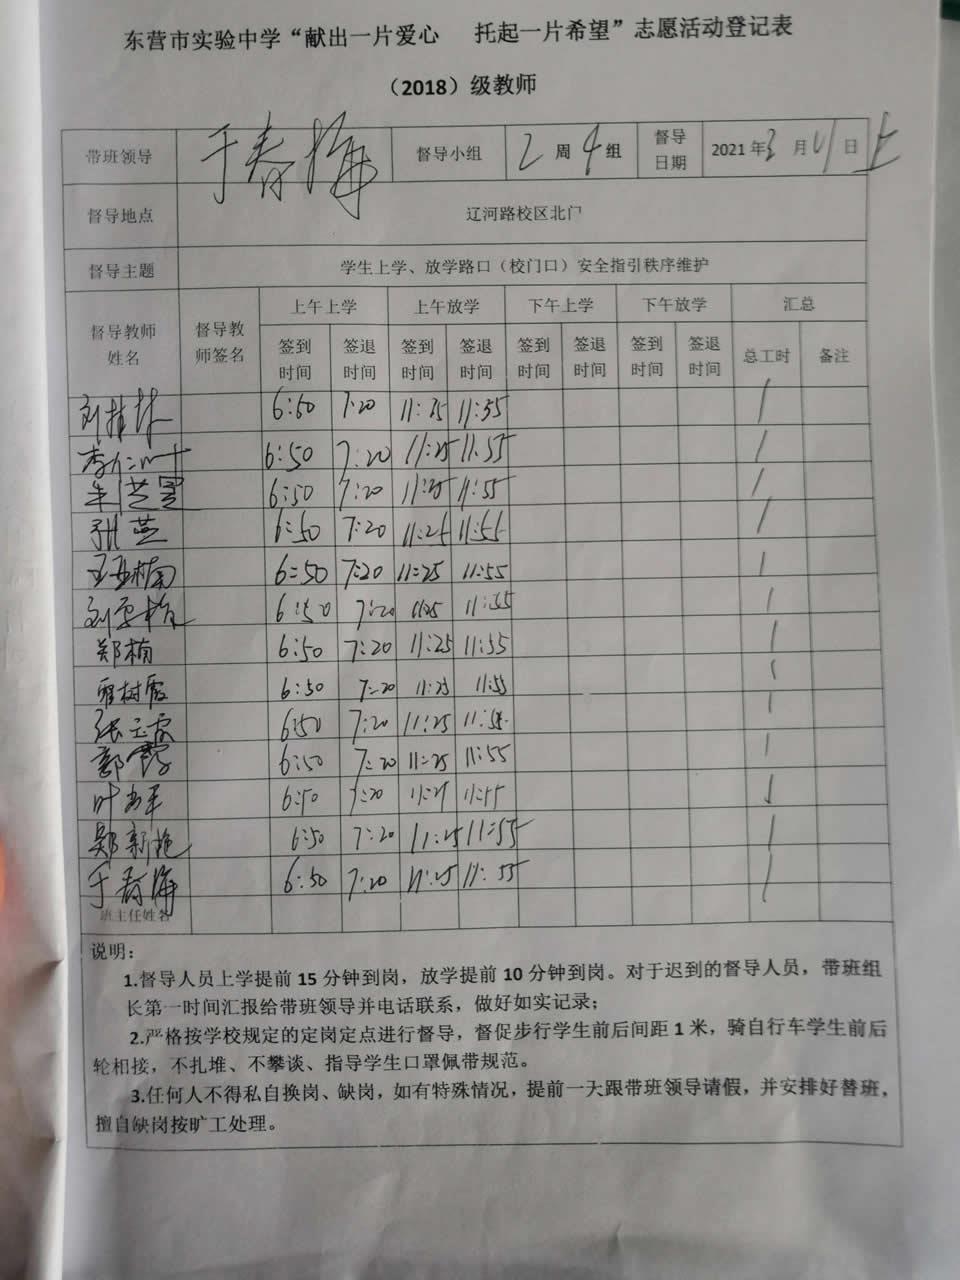 东营市实验中学“献出一片爱心 托起一片希望”志愿活动登记表
（2018）级教师
带班领导 于春梅 督导小组 2 周 4 组 督导日期 2021年3月 日 上
督导地点 辽河路校区北门
督导主题 学生上学、放学路口（校门口）安全指引秩序维护
督导教师姓名 督导教师签名 上午上学 上午放学 下午上学 下午放学 汇总
签到时间 签退时间 签到时间 签退时间 签到时间 签退时间 签到时间 签退时间 总工时 备注
刘桂林 6:50 7:20 11:25 11:55 1
李 6:50 7:20 11:25 11:55 1
6:50 7:20 11:25 11:55 1
张燕 6:50 7:20 11:25 11:55 1
王亚楠 6:50 7:20 11:25 11:55 1
刘雪梅 6:50 7:20 11:25 11:55 1
郑楠 6:50 7:20 11:25 11:55 1
树霞 6:50 7:20 11:25 11:55 1
张立霞 6:50 7:20 11:25 11:55 1
郭霞 6:50 7:20 11:25 11:55 1
叶 军 6:50 7:20 11:25 11:55 1
郑新艳 6:50 7:20 11:25 11:55 1
于春梅 6:50 7:20 11:25 11:55 1
班主任姓名
说明：
1.督导人员上学提前 15 分钟到岗，放学提前 10 分钟到岗。对于迟到的督导人员，带班组
长第一时间汇报给带班领导并电话联系，做好如实记录；
2.严格按学校规定的定岗定点进行督导，督促步行学生前后间距 1 米，骑自行车学生前后
轮相接，不扎堆、不攀谈、指导学生口罩佩带规范。
3.任何人不得私自换岗、缺岗，如有特殊情况，提前一天跟带班领导请假，并安排好替班，
擅自缺岗按旷工处理。